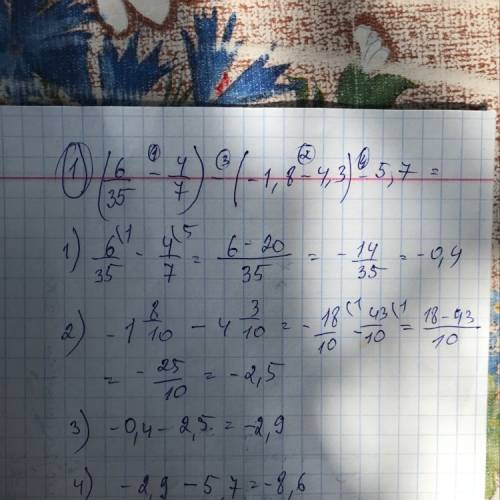 1) (6/35 - 4/7) - (-1,8 - 4,3) - 5,7 =
1) 6/35 - 4/7 = (6 - 20)/35 = -14/35 = -0,4
2) -1 8/10 - 4 3/10 = -18/10 - 43/10 = (18 - 43)/10
= -25/10 = -2,5
3) -0,4 - 2,5 = -2,9
4) -2,9 - 5,7 = -8,6